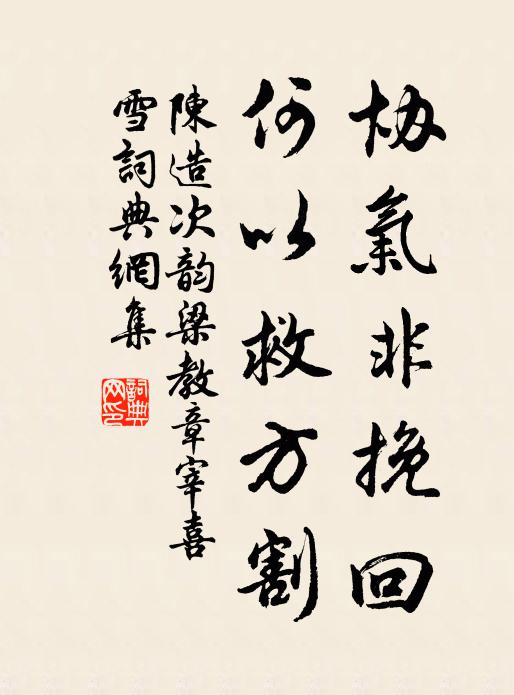 协氣非挽回
何以救方割
陳造次韵梁教章宰喜
雪詞典網集
詞典
网印